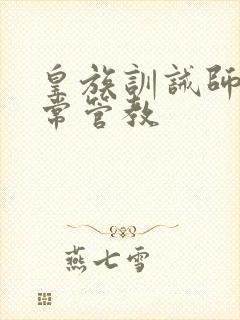 皇族訓誡師
常管教
燕七雪